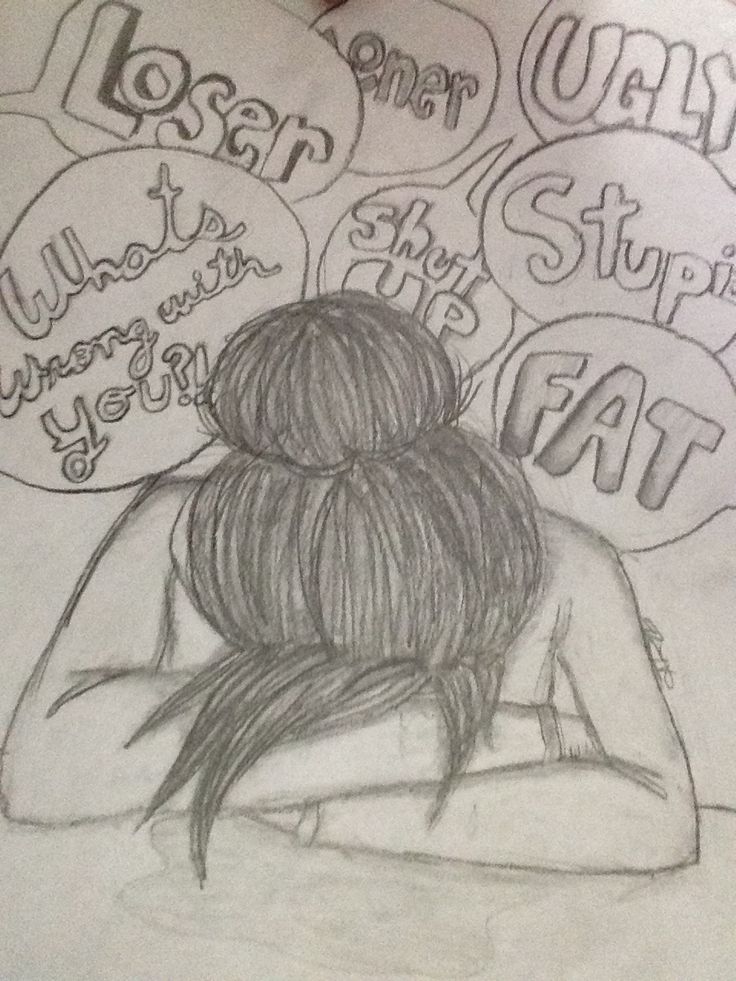 Loser
Loner
UGLY
Whats
wrong with
you?!
Shut
UP
Stupid
FAT